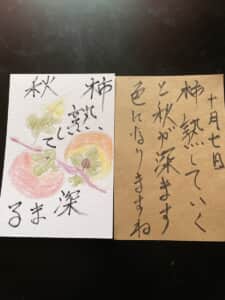 十月七日
柿熟していく
と秋が深ます
色になりますね
柿
熟し
て
秋
深まる